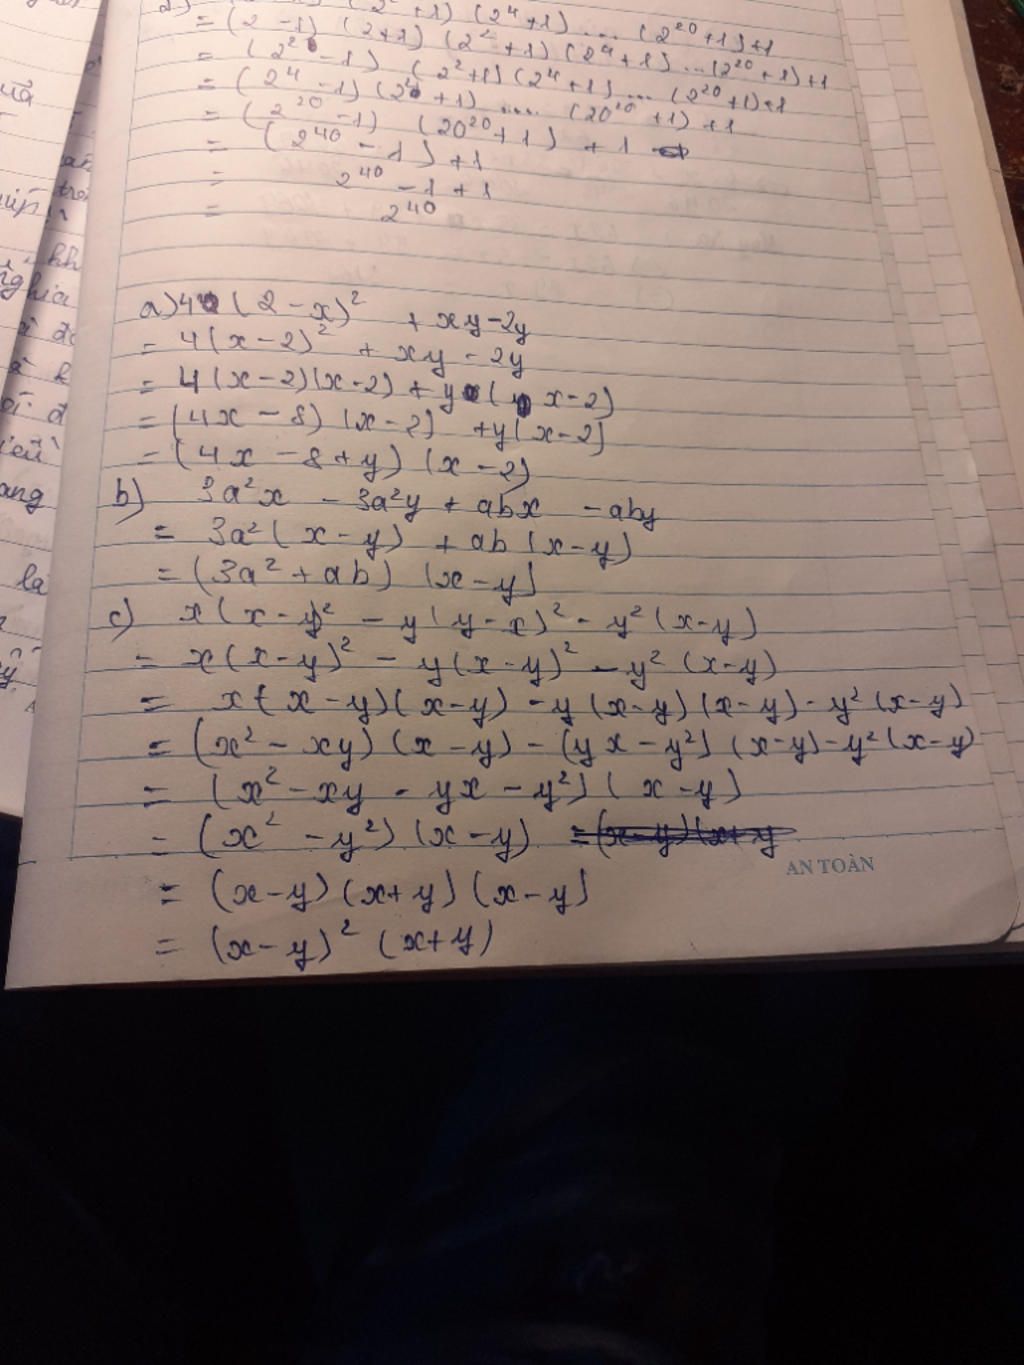 (2² + 1) (2⁴ + 1) ... (2²⁰ + 1) + 1
= (2 - 1) (2 + 1) (2² + 1) (2⁴ + 1) ... (2²⁰ + 1) + 1
= (2² - 1) (2² + 1) (2⁴ + 1) ... (2²⁰ + 1) + 1
= (2⁴ - 1) (2⁴ + 1) .... (20²⁰ + 1) + 1
= (2²⁰ - 1) (20²⁰ + 1) + 1
= (2⁴⁰ - 1) + 1
= 2⁴⁰ - 1 + 1
= 2⁴⁰
a) 4 (2 - x)² + xy - 2y
= 4 (x - 2)² + xy - 2y
= 4 (x - 2) (x - 2) + y (x - 2)
= (4x - 8) (x - 2) + y (x - 2)
= (4x - 8 + y) (x - 2)
b) 3a²x - 3a²y + abx - aby
= 3a² (x - y) + ab (x - y)
= (3a² + ab) (x - y)
c) x (x - y)² - y (y - x)² - y² (x - y)
= x (x - y)² - y (x - y)² - y² (x - y)
= x (x - y) (x - y) - y (x - y) (x - y) - y² (x - y)
= (x² - xy) (x - y) - (yx - y²) (x - y) - y² (x - y)
= (x² - xy - yx - y²) (x - y)
= (x² - y²) (x - y)
AN TOÀN
= (x - y) (x + y) (x - y)
= (x - y)² (x + y)